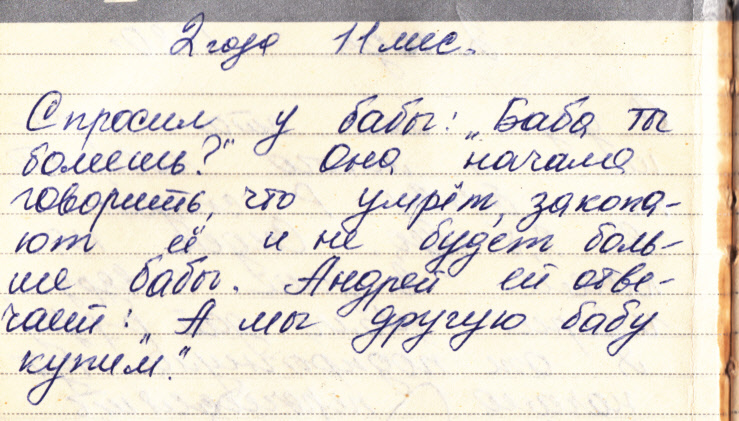 2 года 11 мес.
Спросил у бабы: „Баба ты
болеешь?" Она начала
говорить, что умрёт, закопа-
ют её и не будет боль-
ше бабы. Андрей ей отве-
чает: "А мы другую бабу
купим".